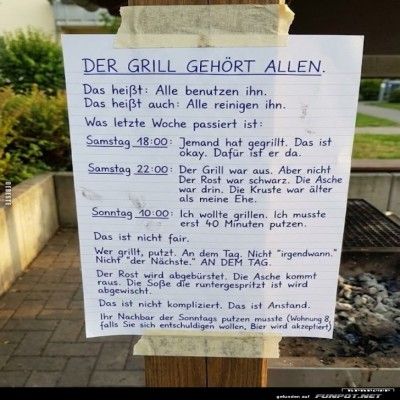 DER GRILL GEHÖRT ALLEN.
Das heißt: Alle benutzen ihn.
Das heißt auch: Alle reinigen ihn.
Was letzte Woche passiert ist:
Samstag 18:00: Jemand hat gegrillt. Das ist
okay. Dafür ist er da.
Samstag 22:00: Der Grill war aus. Aber nicht
Der Rost war schwarz. Die Asche
war drin. Die Kruste war älter
als meine Ehe.
Sonntag 10:00: Ich wollte grillen. Ich musste
erst 40 Minuten putzen.
Das ist nicht fair.
Wer grillt, putzt. An dem Tag. Nicht "irgendwann."
Nicht "der Nächste." AN DEM TAG.
Der Rost wird abgebürstet. Die Asche kommt
raus. Die Soße die runtergespritzt ist wird
abgewischt.
Das ist nicht kompliziert. Das ist Anstand.
Ihr Nachbar der Sonntags putzen musste (Wohnung 8,
falls Sie sich entschuldigen wollen, Bier wird akzeptiert)
gefunden auf FUNPOT.NET